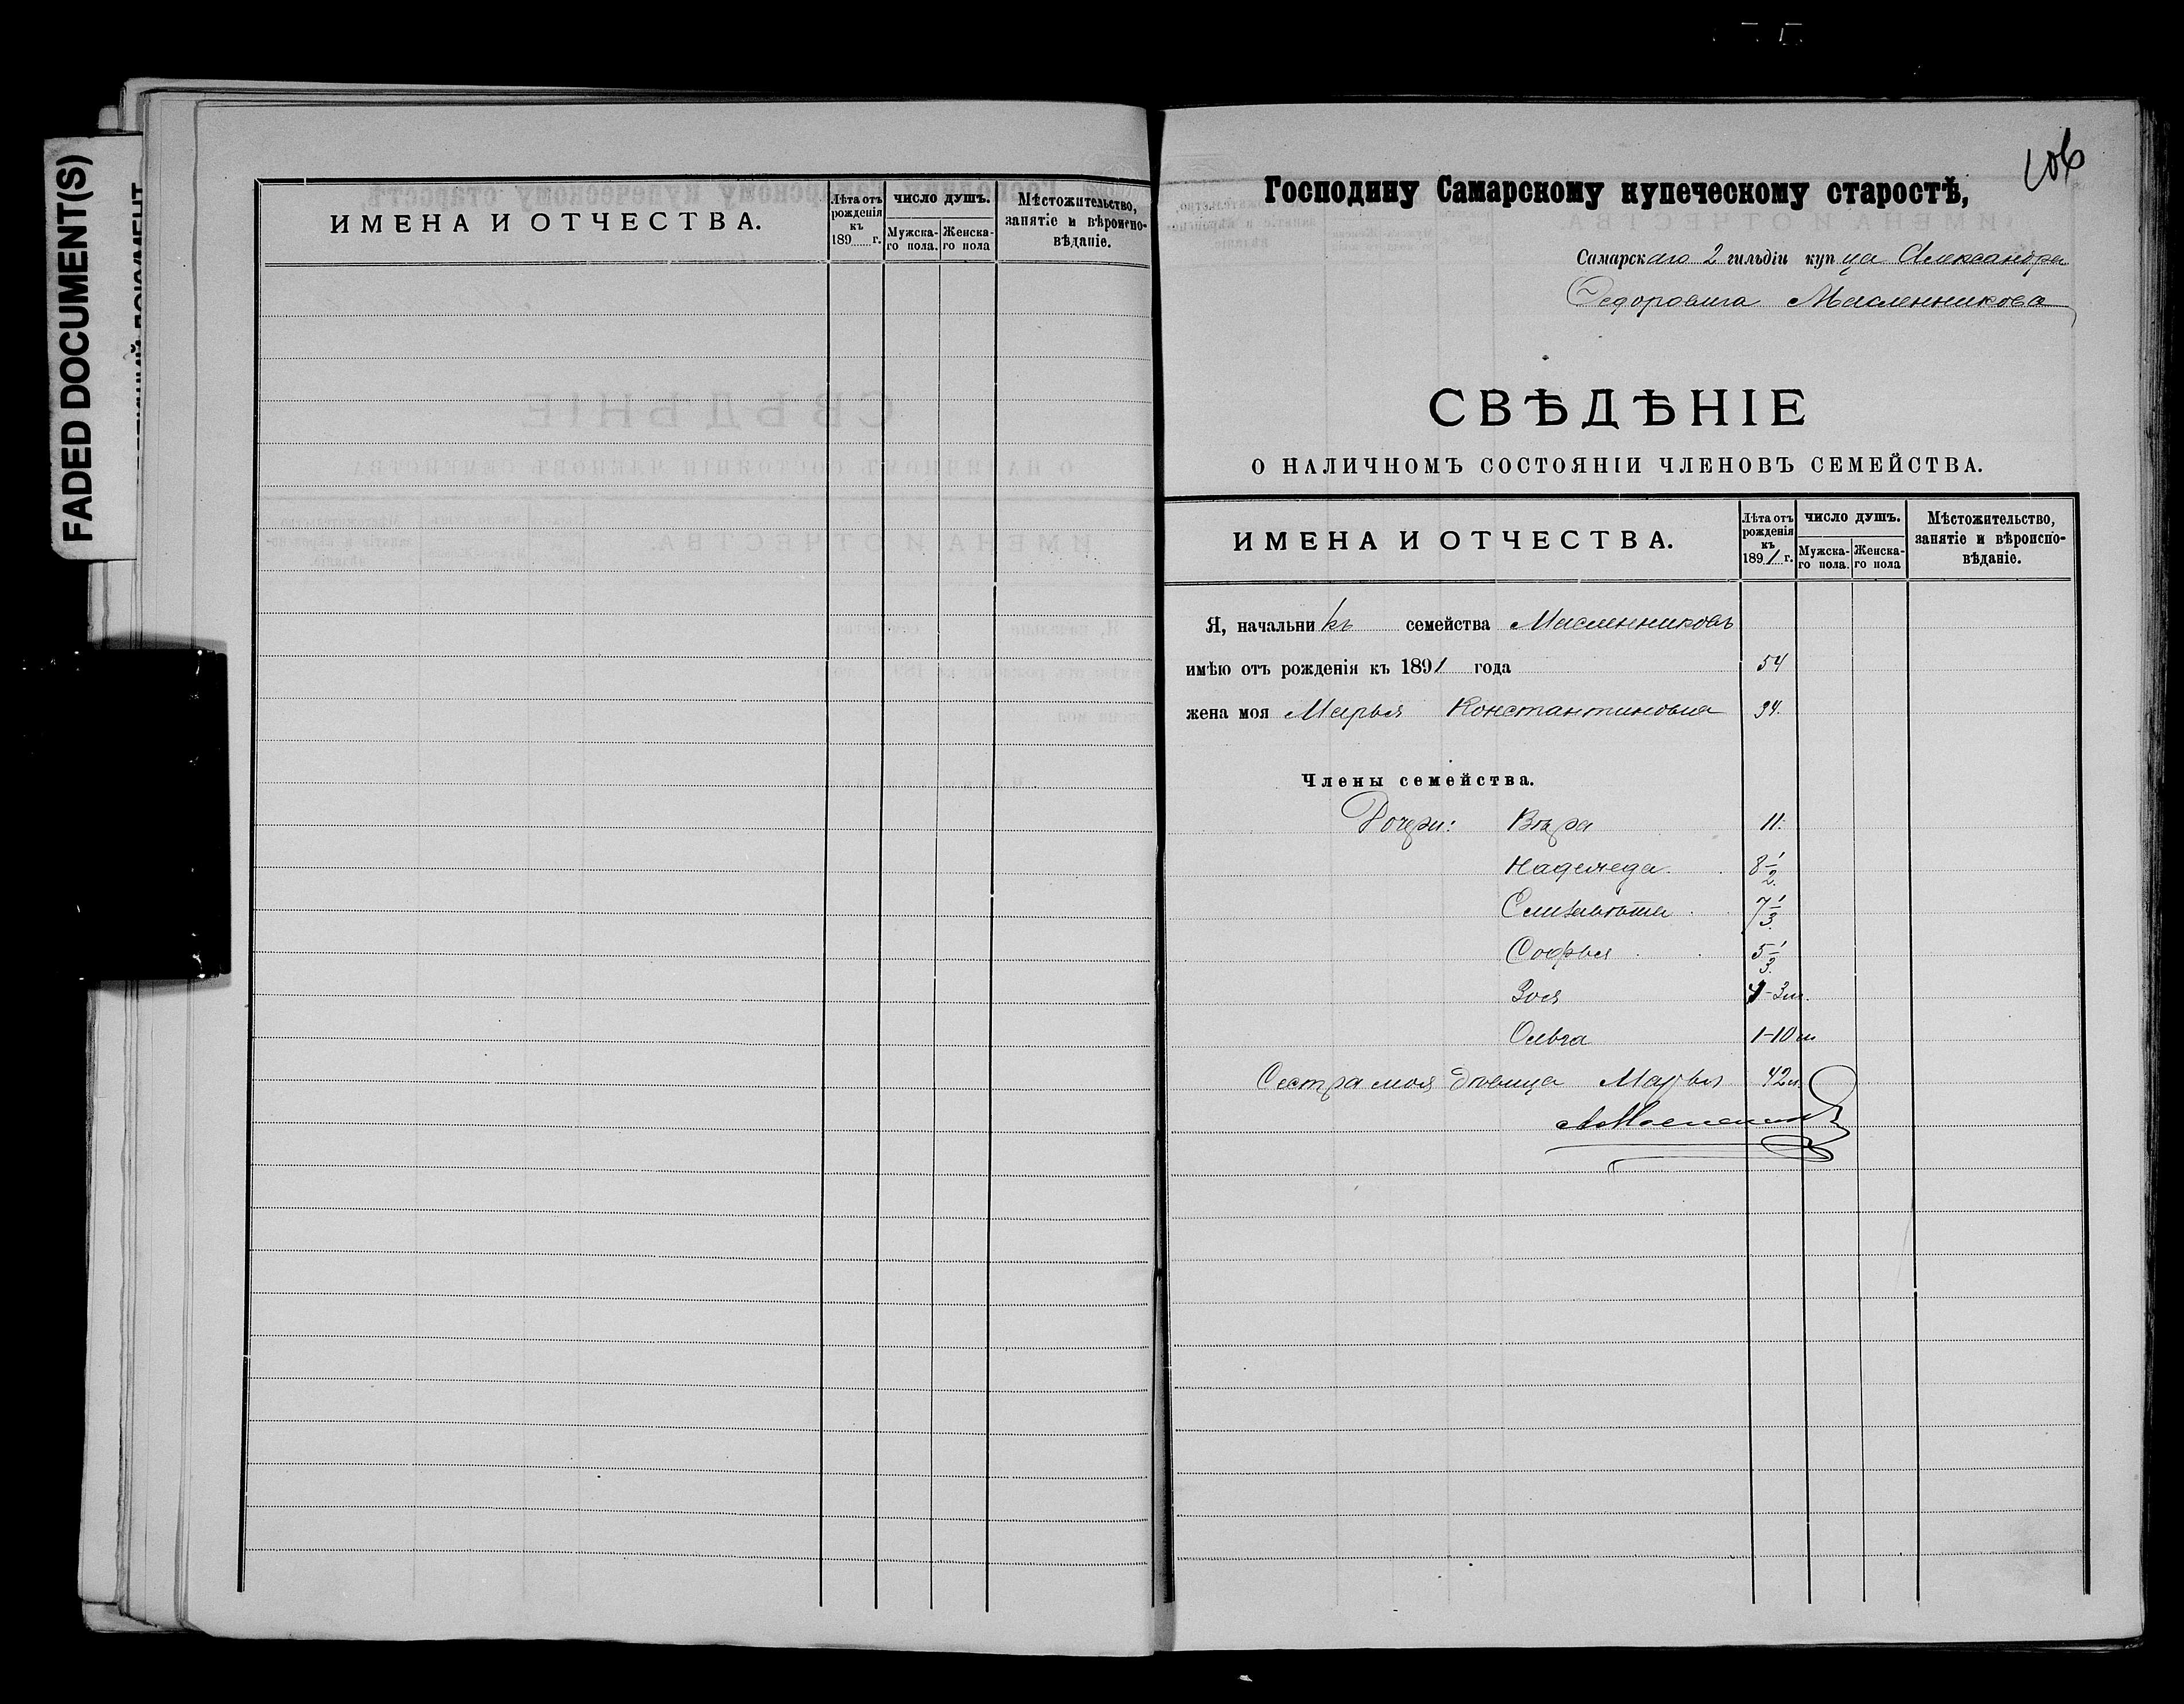 FADED DOCUMENT(S)
ИМЕНА И ОТЧЕСТВА.
Лѣта отъ рожденія къ 189 г.
ЧИСЛО ДУШЪ.
Мужскаго пола.
Женскаго пола
Мѣстожительство, занятіе и вѣроисповѣданіе.
106
Господину Самарскому купеческому старостѣ,
Самарскаго 2 гильдіи купца Александра
Федоровича Масленникова
СВѢДѢНІЕ
О НАЛИЧНОМЪ СОСТОЯНІИ ЧЛЕНОВЪ СЕМЕЙСТВА.
ИМЕНА И ОТЧЕСТВА.
Лѣта отъ рожденія къ 1891 г.
ЧИСЛО ДУШЪ.
Мужскаго пола.
Женскаго пола
Мѣстожительство, занятіе и вѣроисповѣданіе.
Я, начальникъ семейства Масленниковъ
имѣю отъ рожденія къ 1891 года 54
жена моя Марья Константиновна 34.
Члены семейства.
Дочери: Вѣра 11.
Надежда. 8 1/2.
Елизавѣта 7 1/3.
Софья 5 1/3.
Зоя 4-3 м.
Ольга 1-10 м
Сестра моя дѣвица Марья 42 л.